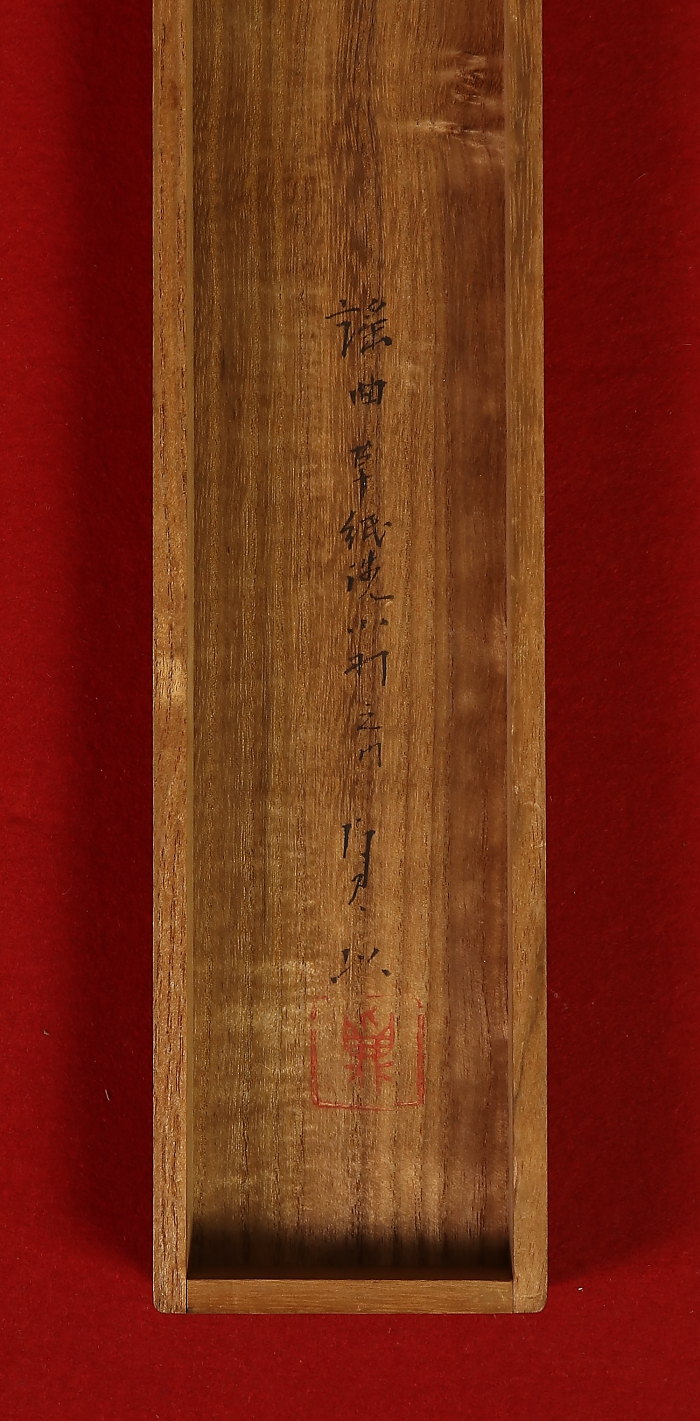 謡曲 草紙洗小町之内 貞以